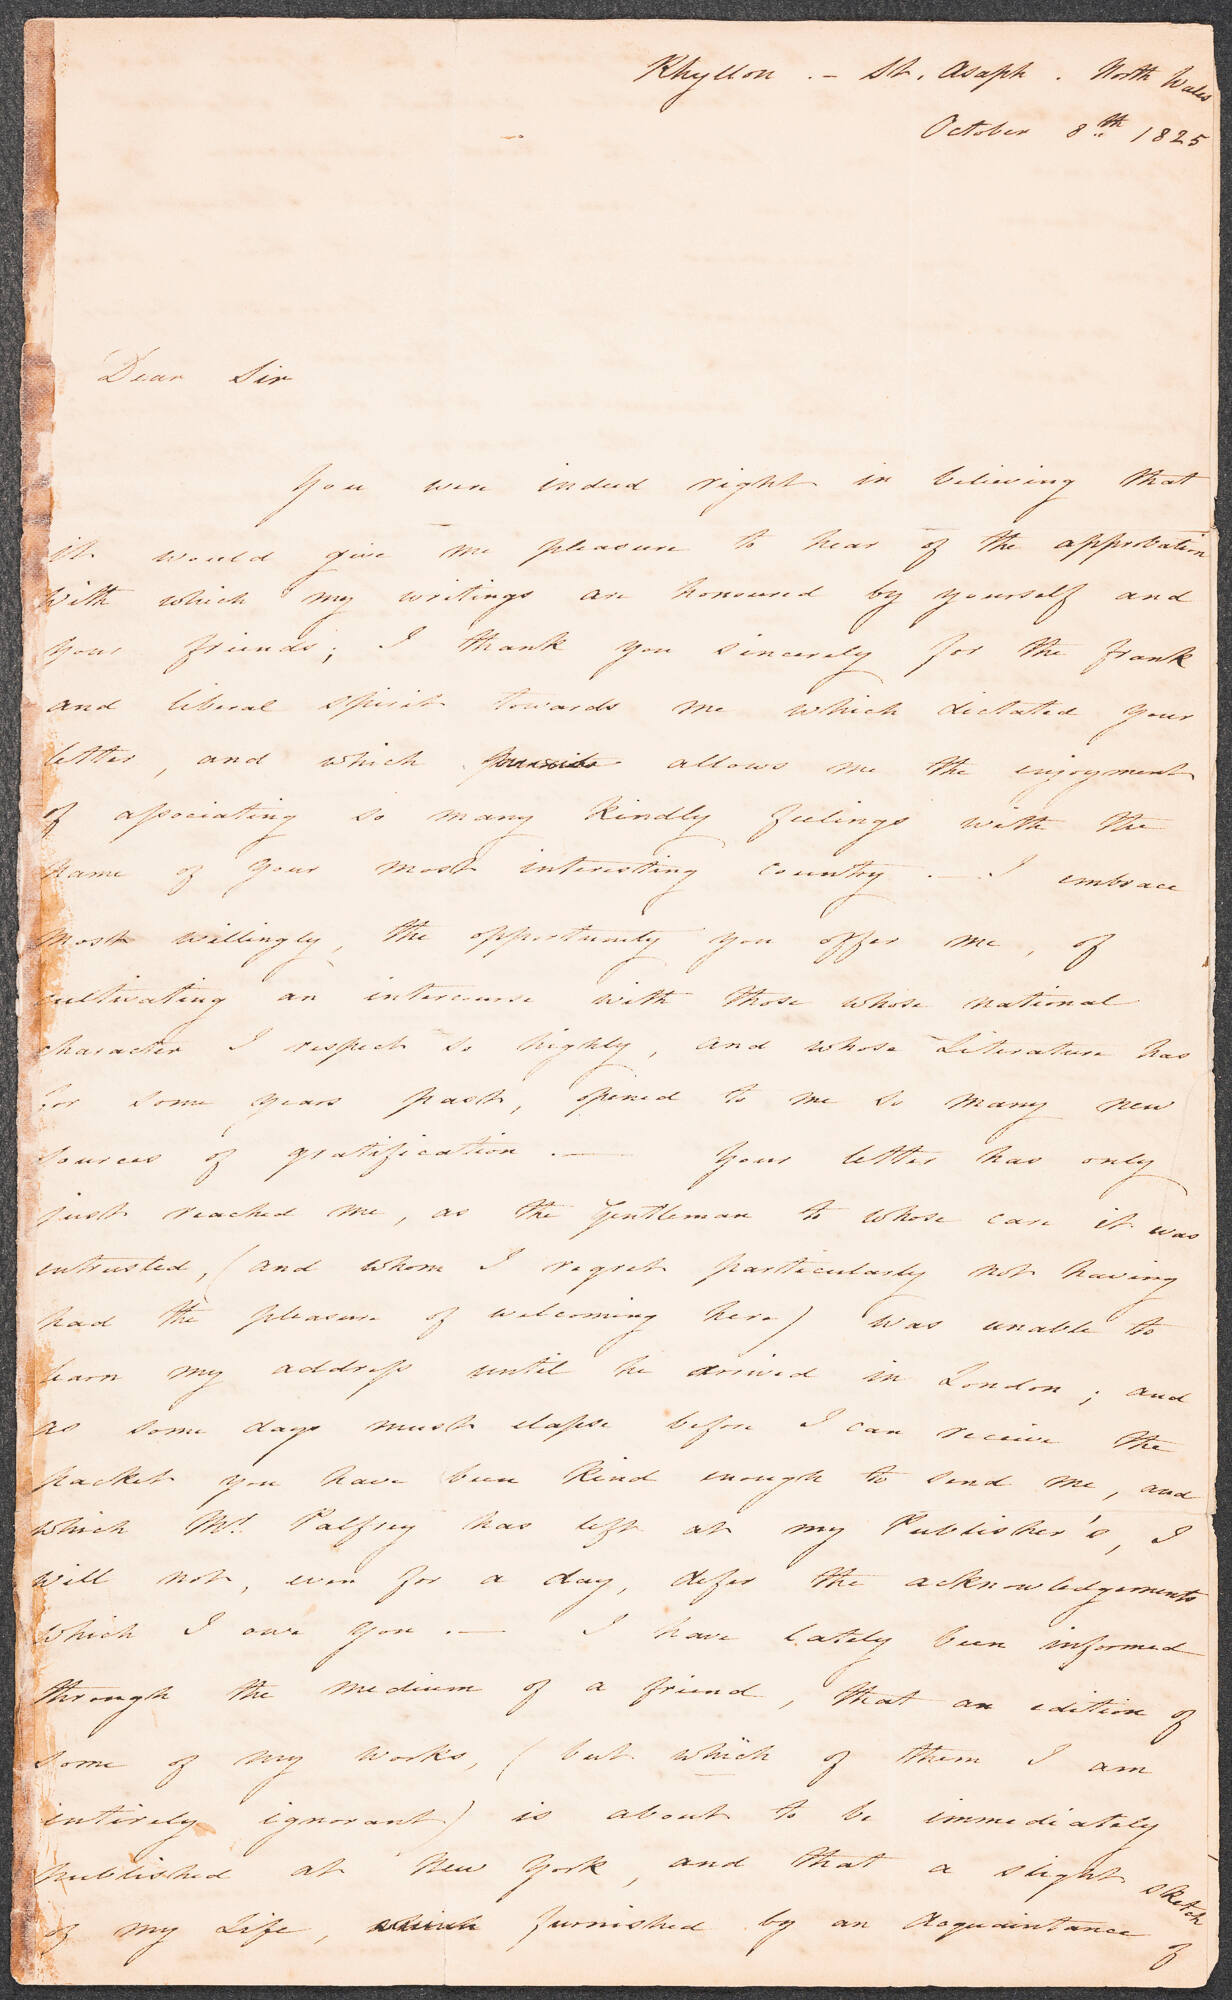 Rhyllon .– St. Asaph . North Wales
October 8th 1825
Dear Sir
You were indeed right in believing that
it would give me pleasure to hear of the approbation
with which my writings are honoured by yourself and
your friends; I thank you sincerely for the frank
and liberal spirit towards me which dictated your
letter, and which allows me the enjoyment
of associating so many kindly feelings with the
name of your most interesting country .— I embrace
most willingly, the opportunity you offer me, of
cultivating an intercourse with those whose national
character I respect so highly, and whose Literature has
for some years past, opened to me so many new
sources of gratification .— Your letter has only
just reached me, as the Gentleman to whose care it was
entrusted, (and whom I regret particularly not having
had the pleasure of welcoming here) was unable to
learn my address until he arrived in London; and
as some days must elapse before I can receive the
packet you have been kind enough to send me, and
which Mr. Palfrey has left at my Publisher's, I
will not, even for a day, defer the acknowledgements
which I owe you .— I have lately been informed
through the medium of a friend, that an edition of
some of my works, (but which of them I am
entirely ignorant) is about to be immediately
published at New York, and that a slight sketch
of my Life, which furnished by an Acquaintance of